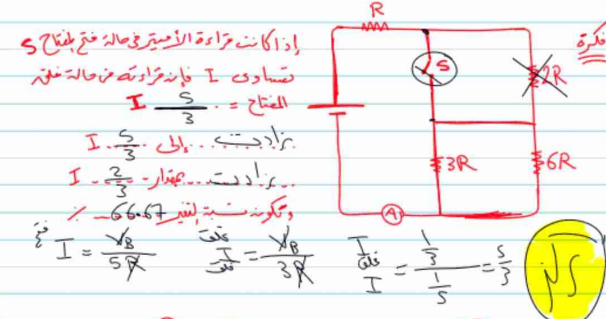 فكرة
إذا كانت قراءة الأميتر فى حالة فتح المفتاح S
تساوى I فإن قراءته فى حالة غلق
المفتاح = 5/3 I
زادت إلى 5/3 I
زادت بمقدار 2/3 I
وتكون نسبة التغير 66.67 %
فتح I = V_B / 5R
I غلق = V_B / 3R
I غلق / I = 1/3 / 1/5 = 5/3
R
S
2R
3R
6R
A